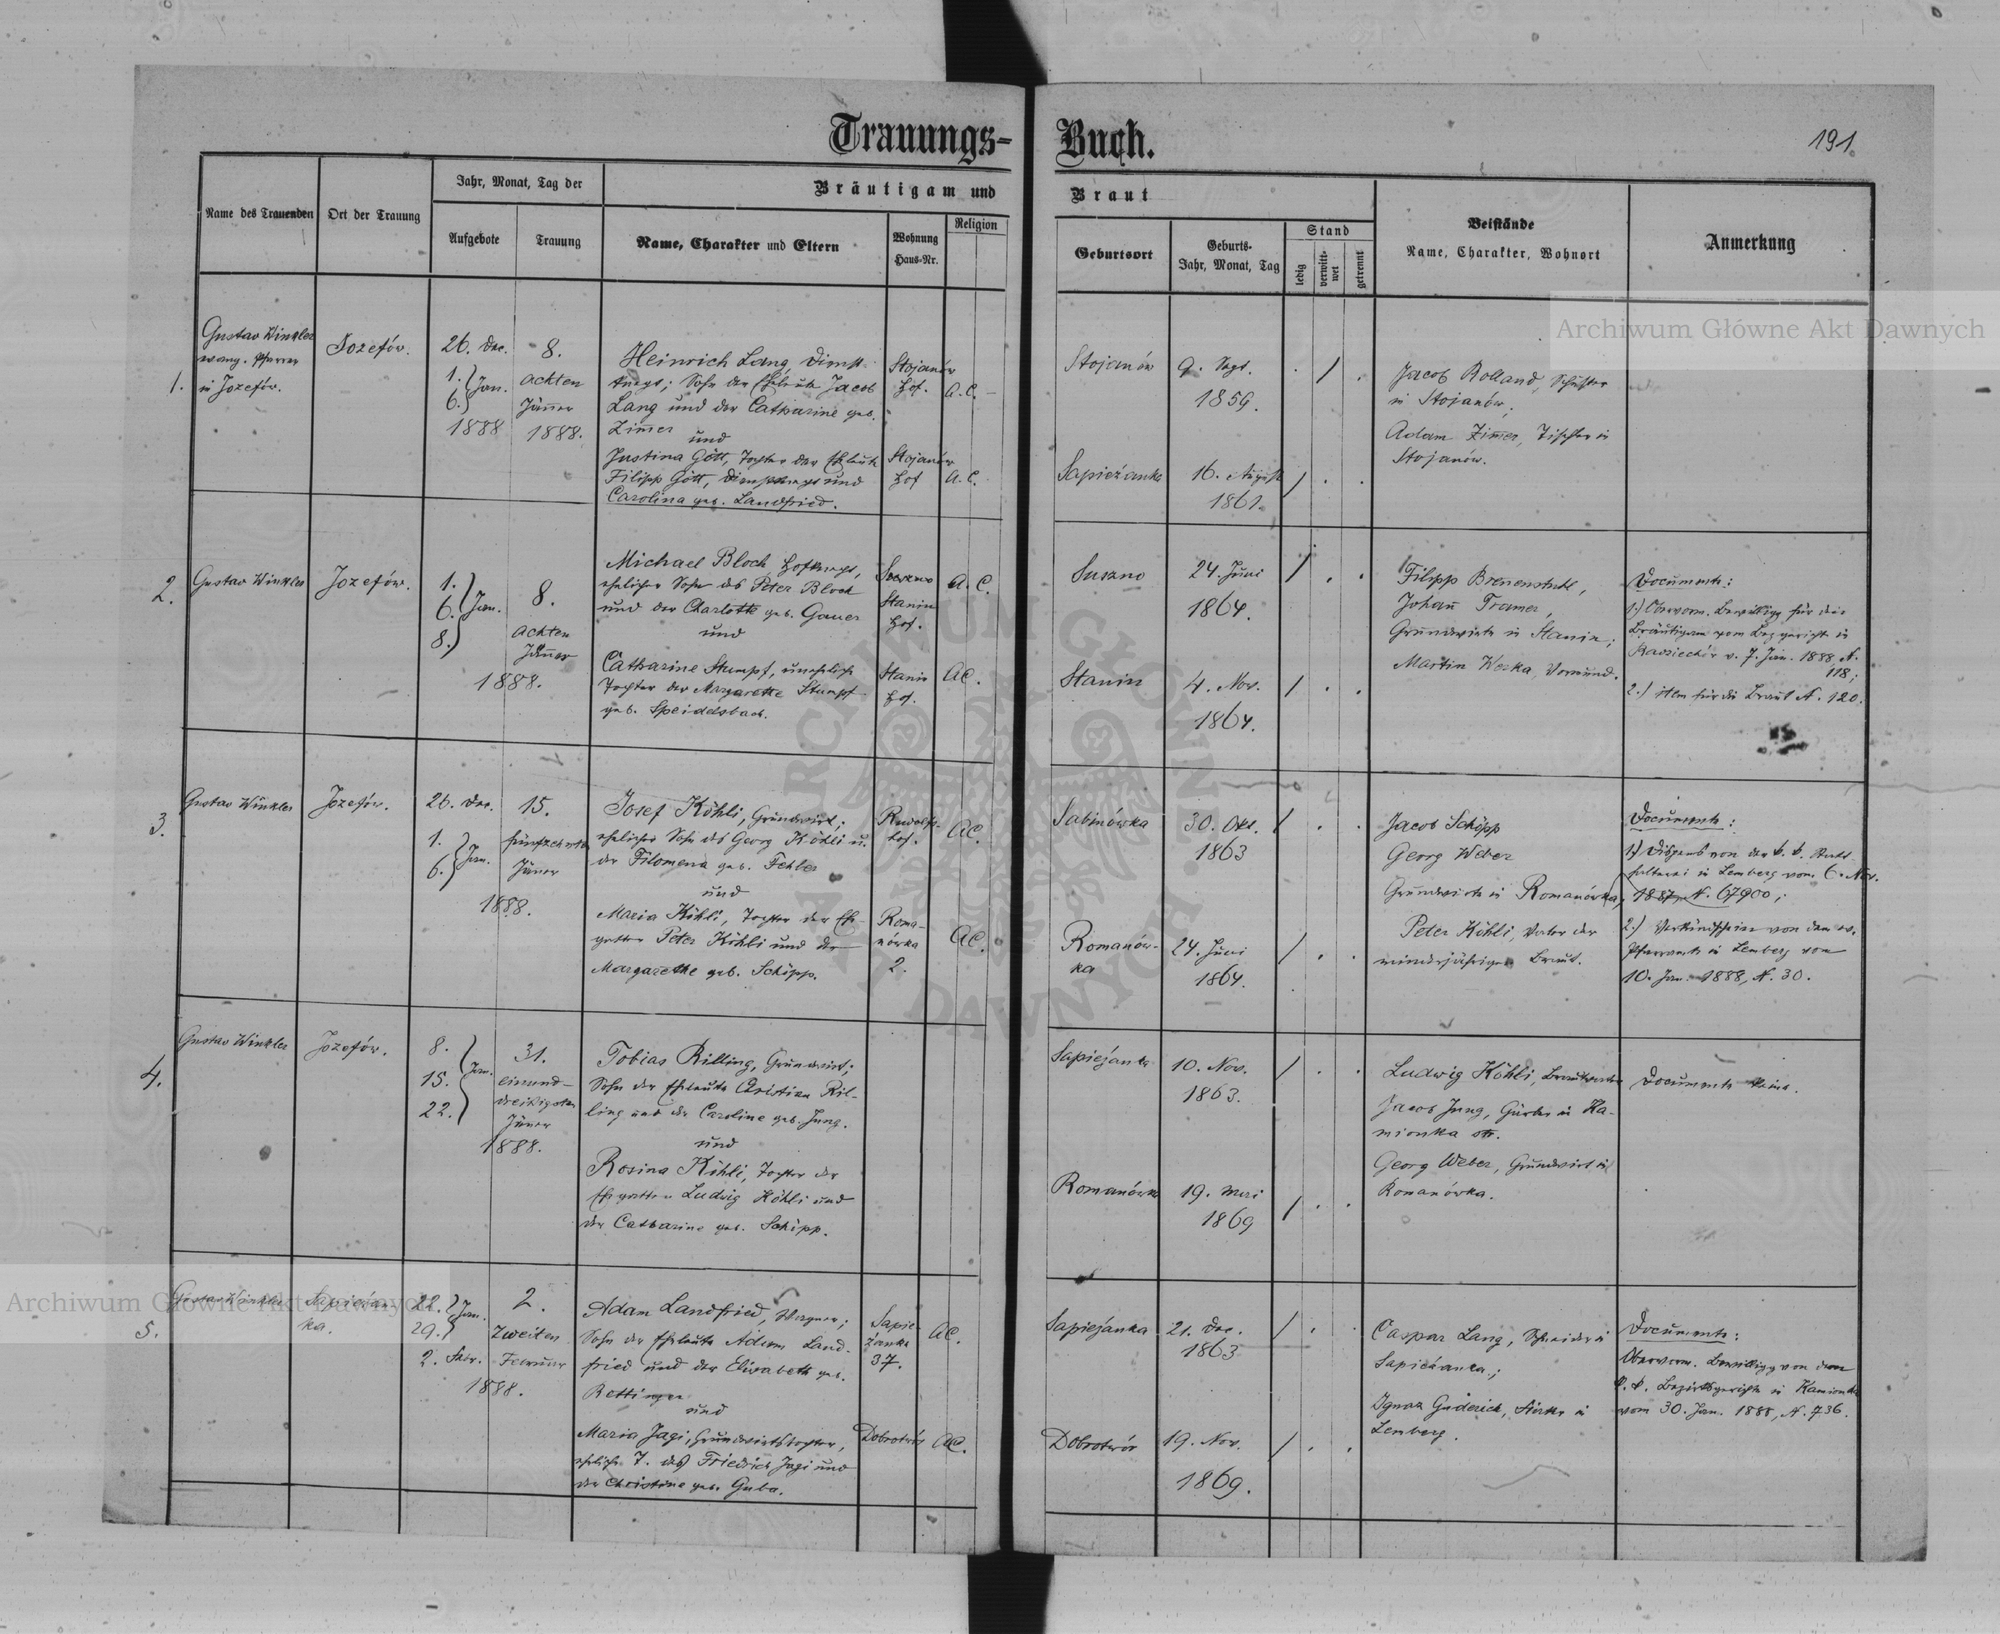 Trauungs-Buch.
191.
Name des Trauenden
Ort der Trauung
Jahr, Monat, Tag der
Aufgebote
Trauung
Bräutigam und Braut
Name, Charakter und Eltern
Wohnung
Haus-Nr.
Religion
Geburtsort
Geburts-
Jahr, Monat, Tag
Stand
ledig
verwitt-
wet
getrennt
Beistände
Name, Charakter, Wohnort
Anmerkung
1.
Gustav Winkler
evang. Pfarrer
in Jozefów.
Jozefów.
26. Dec.
1.
6. Jan.
1888
8.
achten
Jäner
1888.
Heinrich Lang, Dienst-
knecht; Sohn der Eheleute Jacob
Lang und der Catharine geb.
Zimer
und
Justina Gött, Tochter der Eheleute
Filipp Gött, Dienstknecht und
Carolina geb. Landfried.
Stojanów
Hof.
A.C.
Stojanów
Hof
A.C.
Stojanów
9. Sept.
1859.
Sapieżanka
16. August
1861.
Jacob Rolland, Schuster
in Stojanów;
Adam Zimer, Tischler in
Stojanów.
2.
Gustav Winkler
Jozefów.
1.
6. Jan.
8.
8.
achten
Jäner
1888.
Michael Bloch, Hofknecht,
ehelicher Sohn des Peter Bloch
und der Charlotte geb. Gauer
und
Catharine Stumpf, unehelich
Tochter der Margarethe Stumpf
geb. Speidelsbach.
Suszno
Stanin
Hof.
A.C.
Stanin
Hof.
AC.
Suszno
24. Juni
1864.
Stanin
4. Nov.
1864.
Filipp Brenenstuhl,
Johan Tramer,
Grundwirte in Stanin;
Martin Werka, Vormund.
Documente:
1.) Oberorm. Bewilligg für den
Bräutigam vom Bez.gericht in
Radziechów v. 7. Jän. 1888, N.
118;
2.) item für die Braut N. 120.
3.
Gustav Winkler
Jozefów.
26. Dec.
1.
6. Jan.
15.
fünfzehnten
Jäner
1888.
Josef Köhli, Grundwirt;
ehelicher Sohn des Georg Köhli u.
der Filomena geb. Fehler
und
Maria Köhli, Tochter der Ehe-
gatten Peter Köhli und der
Margarethe geb. Schöpp.
Rudolfs-
hof.
AC.
Roma-
nówka
2.
AC.
Sabinówka
30. Okt.
1863
Romanów-
ka
24. Juni
1864.
Jacob Schöpp
Georg Weber
Grundwirte in Romanówka,
Peter Köhli, Vater der
minderjährigen Braut.
Documente:
1.) Dispens von der k. k. Statt-
halterei in Lemberg vom 6. Nov.
1887, N. 67900;
2.) Verkündschein von dem ev.
Pfarramte in Lemberg vom
10. Jan. 1888, N. 30.
4.
Gustav Winkler
Jozefów.
8.
15. Jan.
22.
31.
einund-
dreißigsten
Jäner
1888.
Tobias Rilling, Grundwirt;
Sohn der Eheleute Christian Ril-
ling und der Caroline geb. Jung.
und
Rosina Köhli, Tochter der
Ehegatten Ludwig Köhli und
der Catharine geb. Schöpp.
Sapiejanka
10. Nov.
1863.
Romanówka
19. Mai
1869
Ludwig Köhli, Brautvater
Jacob Jung, Gürtler in Ka-
mionka str.
Georg Weber, Grundwirt in
Romanówka.
Documente keine.
5.
Gustav Winkler
Sapieżan-
ka.
22.
29. Jan.
2. Febr.
2.
zweiten
Februar
1888.
Adam Landfried, Wagner;
Sohn der Eheleute Adam Land-
fried und der Elisabeth geb.
Rettinger
und
Maria Jagi, Grundwirtstochter,
eheliche T. des Friedrich Jagi und
der Christine geb. Guba.
Sapie-
żanka
37.
AC.
Dobrotwór
AC.
Sapiejanka
21. Dec.
1863
Dobrotwór
19. Nov.
1869.
Caspar Lang, Schneider in
Sapieżanka;
Ignaz Guderich, in
Lemberg.
Documente:
Oberorm. Bewilligg von dem
k. k. Bezirksgericht in Kamionka
vom 30. Jan. 1888, N. 736.
Archiwum Główne Akt Dawnych
Archiwum Główne Akt Dawnych
ARCHIWUM GŁÓWNE AKT DAWNYCH